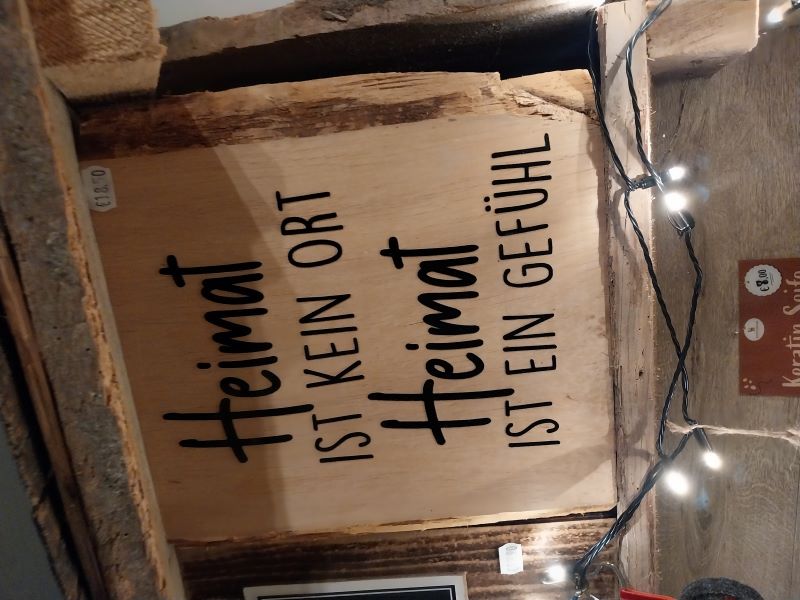 €18.50
Heimat
IST KEIN ORT
Heimat
IST EIN GEFÜHL
€8.00
Keratin Seife